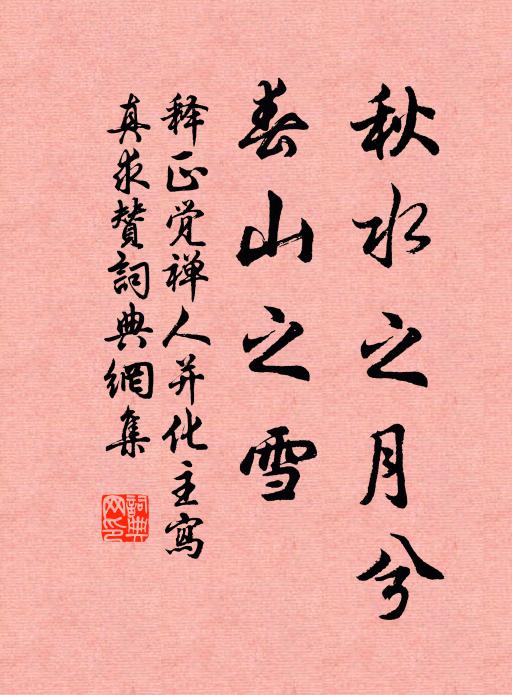 秋水之月兮
春山之雪
释正觉禅人并化主寫
真求赞詞典網集
詞典网印